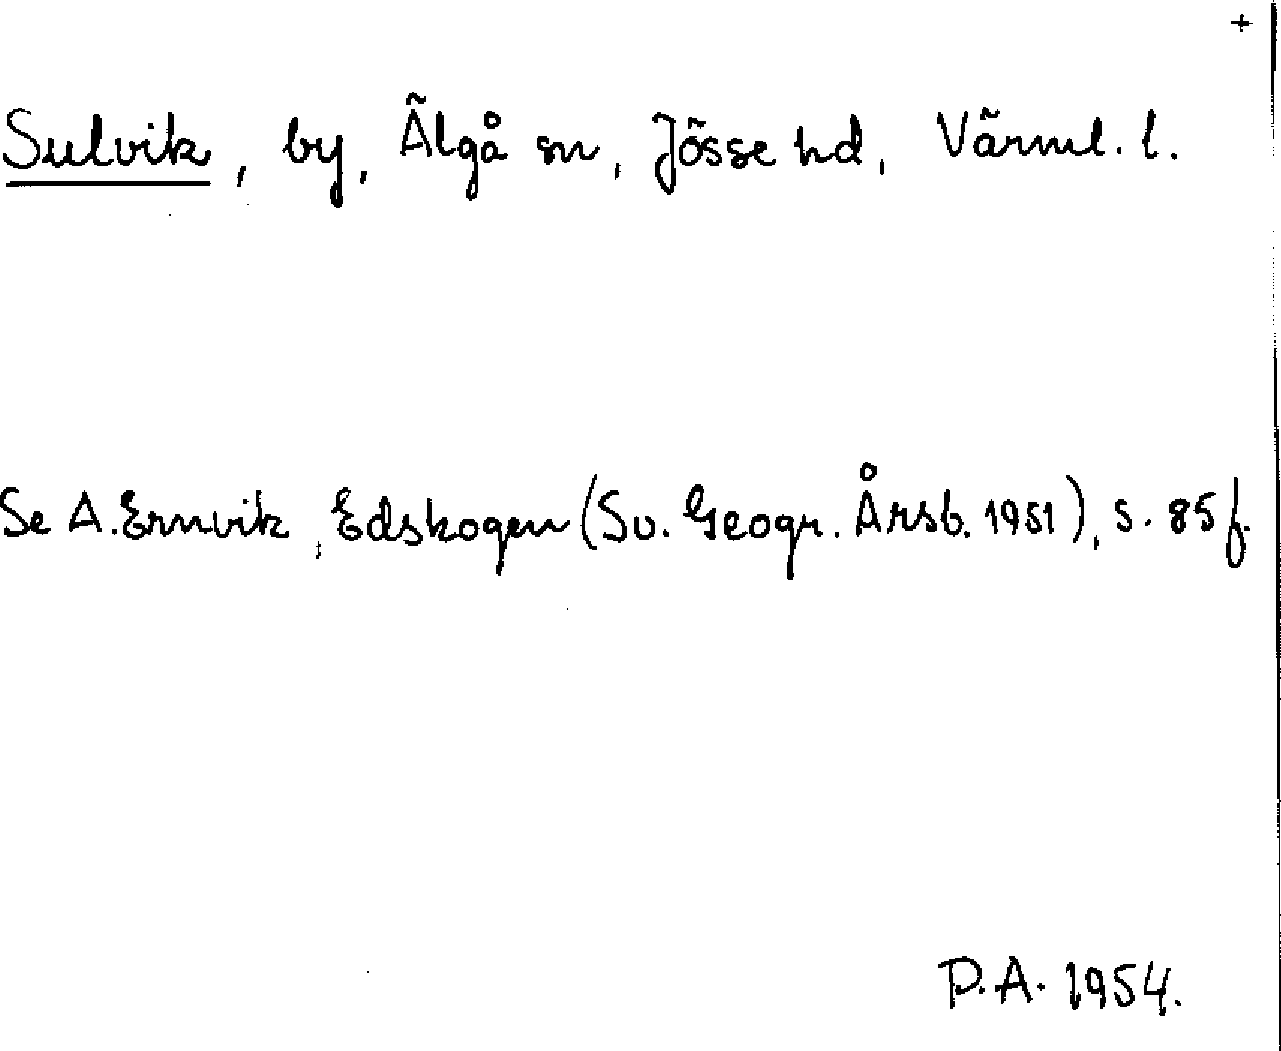 +
Sulvik, by, Älgå sn, Jösse hd, Värml. l.
Se A. Ernvik, Edskogen (Sv. Geogr. Årsb. 1951), s. 85 f.
P.A. 1954.